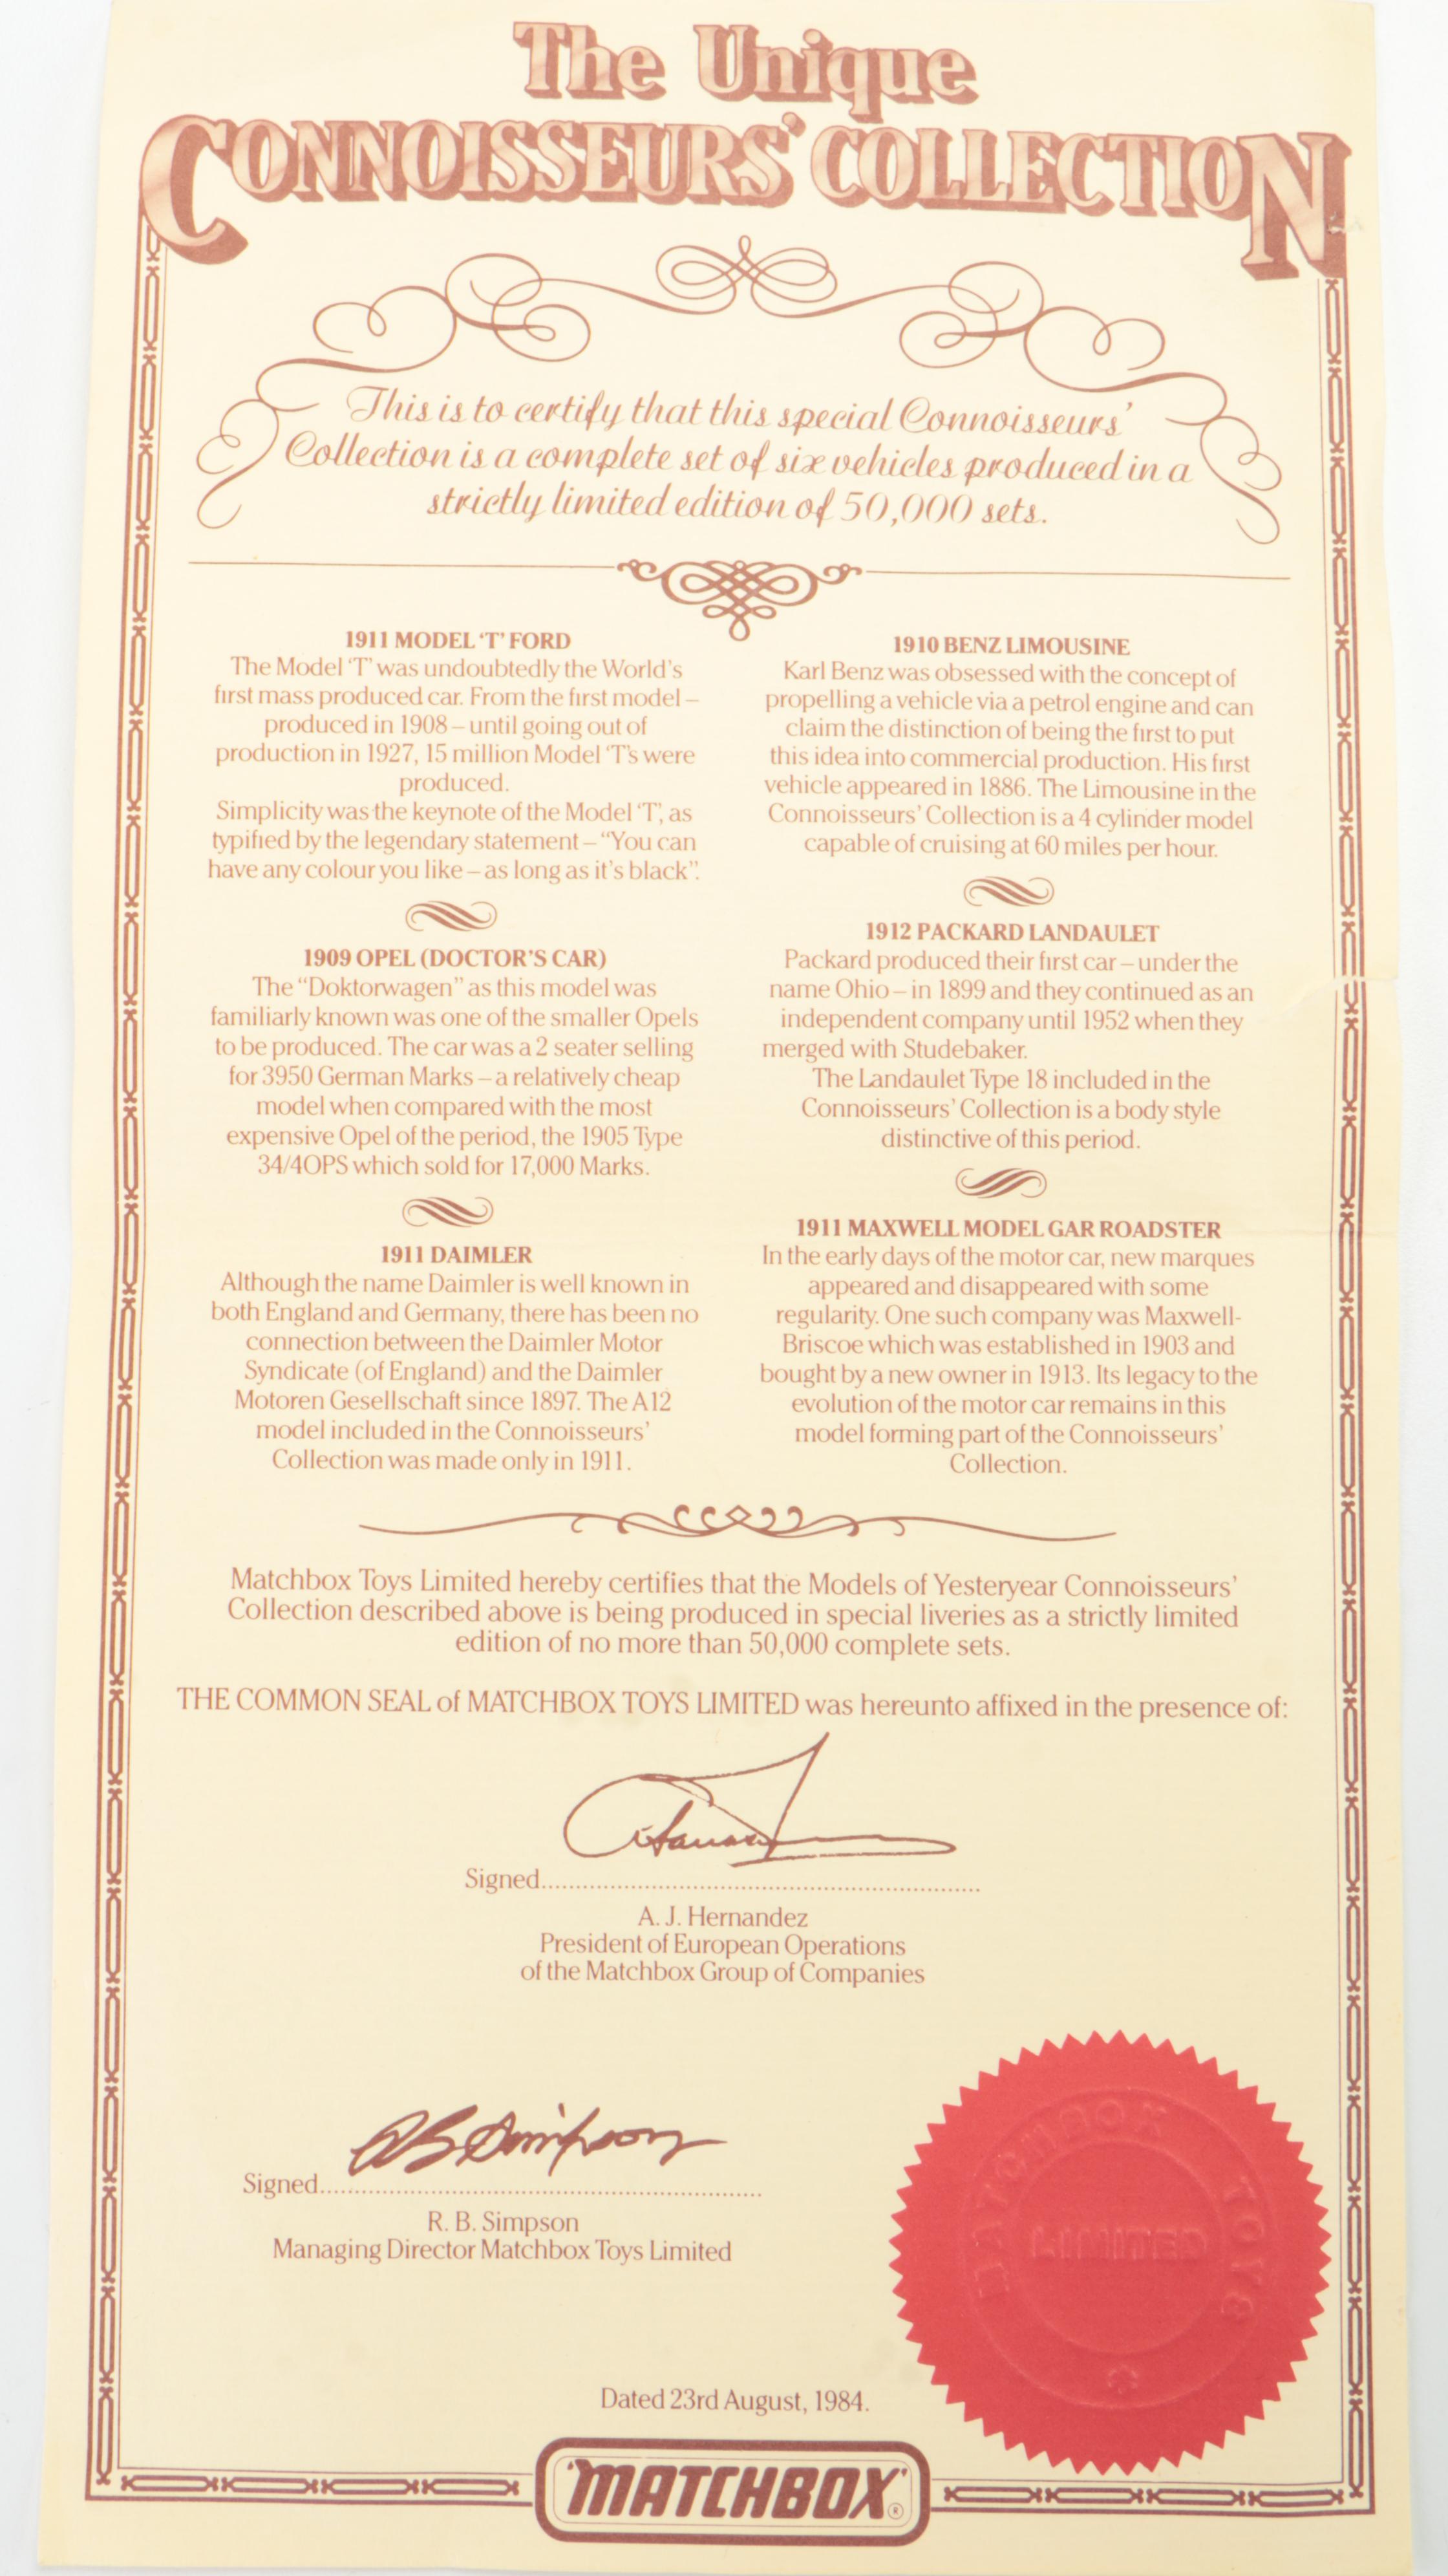 The Unique
CONNOISSEURS' COLLECTION
This is to certify that this special Connoisseurs'
Collection is a complete set of six vehicles produced in a
strictly limited edition of 50,000 sets.
1911 MODEL ‘T’ FORD
The Model ‘T’ was undoubtedly the World's
first mass produced car. From the first model –
produced in 1908 – until going out of
production in 1927, 15 million Model ‘T’s were
produced.
Simplicity was the keynote of the Model ‘T’, as
typified by the legendary statement – “You can
have any colour you like – as long as it's black”.
1909 OPEL (DOCTOR'S CAR)
The “Doktorwagen” as this model was
familiarly known was one of the smaller Opels
to be produced. The car was a 2 seater selling
for 3950 German Marks – a relatively cheap
model when compared with the most
expensive Opel of the period, the 1905 Type
34/4OPS which sold for 17,000 Marks.
1911 DAIMLER
Although the name Daimler is well known in
both England and Germany, there has been no
connection between the Daimler Motor
Syndicate (of England) and the Daimler
Motoren Gesellschaft since 1897. The A12
model included in the Connoisseurs'
Collection was made only in 1911.
1910 BENZ LIMOUSINE
Karl Benz was obsessed with the concept of
propelling a vehicle via a petrol engine and can
claim the distinction of being the first to put
this idea into commercial production. His first
vehicle appeared in 1886. The Limousine in the
Connoisseurs' Collection is a 4 cylinder model
capable of cruising at 60 miles per hour.
1912 PACKARD LANDAULET
Packard produced their first car – under the
name Ohio – in 1899 and they continued as an
independent company until 1952 when they
merged with Studebaker.
The Landaulet Type 18 included in the
Connoisseurs' Collection is a body style
distinctive of this period.
1911 MAXWELL MODEL GAR ROADSTER
In the early days of the motor car, new marques
appeared and disappeared with some
regularity. One such company was Maxwell-
Briscoe which was established in 1903 and
bought by a new owner in 1913. Its legacy to the
evolution of the motor car remains in this
model forming part of the Connoisseurs'
Collection.
Matchbox Toys Limited hereby certifies that the Models of Yesteryear Connoisseurs'
Collection described above is being produced in special liveries as a strictly limited
edition of no more than 50,000 complete sets.
THE COMMON SEAL of MATCHBOX TOYS LIMITED was hereunto affixed in the presence of:
Signed
A. J. Hernandez
President of European Operations
of the Matchbox Group of Companies
RB Simpson
Signed
R. B. Simpson
Managing Director Matchbox Toys Limited
MATCHBOX TOYS
LIMITED
Dated 23rd August, 1984.
'MATCHBOX'®